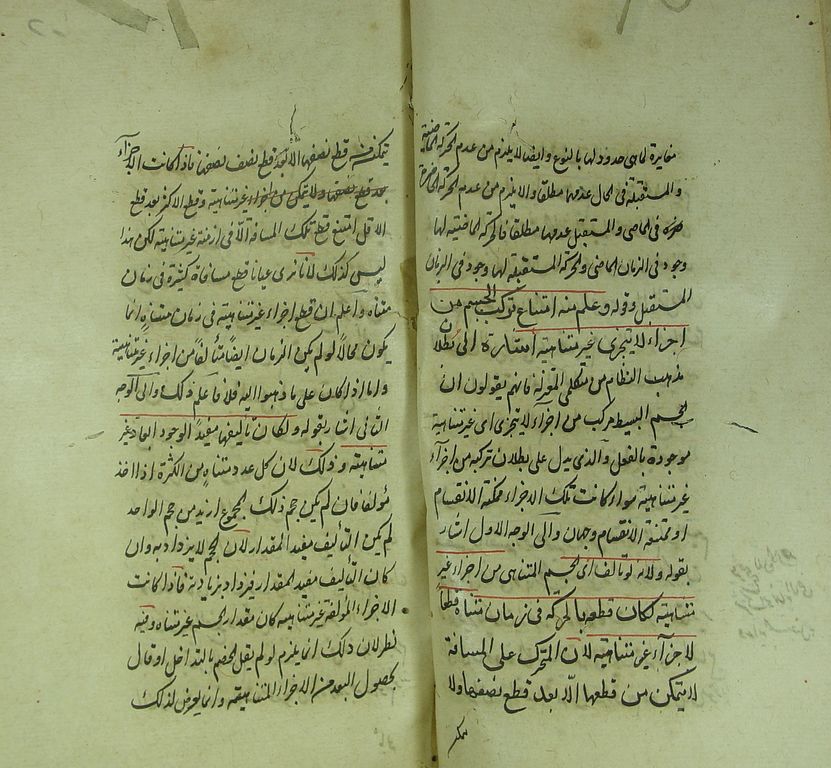 مغايرة لما هى حدود لها بالنوع وايضا لا يلزم من عدم الحركة الماضية
والمستقبلة فى الحال عدمها مطلقا والا يلزم من عدم الحركة الحاضرة
فى الماضى والمستقبل عدمها مطلقا فالحركة الماضية لها
وجود فى الزمان الماضى والحركة المستقبلة لها وجود فى الزمان
المستقبل وقوله وعلم منه امتناع تركب الجسم من
اجزاء لا يتجزى غير متناهية اشارة الى بطلان
مذهب النظام من متكلمى المعتزلة فانهم يقولون ان
الجسم البسيط مركب من اجزاء لا يتجزى اى غير متناهية
موجودة بالفعل والذى يدل على بطلان تركبه من اجزاء
غير متناهية سواء كانت تلك الاجزاء ممكنة الانقسام
او ممتنعة الانقسام وجهان والى الوجه الاول اشار
بقوله ولانه لو تالف اى الجسم المتناهى من اجزاء غير
متناهية لكان قطعه بالحركة فى زمان متناه قطعا
لاجزاء غير متناهية لان المتحرك على المسافة
لا يتمكن من قطعها الا بعد قطع نصفها ولا
يتمكن
يتمكن من قطع نصفها الا بعد قطع نصف نصفها فاذا كانت الاجزاء
بعد قطع نصفها ولا يتمكن من اجزاء غير متناهية وقطع الاكثر بعد قطع
الاقل امتنع قطع تلك المسافة الا فى ازمنة غير متناهية لكن هذا
ليس كذلك لانا نرى عيانا قطع مسافات كثيرة فى زمان
متناه واعلم ان قطع اجزاء غير متناهية فى زمان متناه انما
يكون محالا لو لم يكن الزمان ايضا متألفا من اجزاء غير متناهية
واما اذا كان على ما ذهبوا اليه فلا فاعلم ذلك والى الوجه
الثانى اشار بقوله ولكان تاليفها مفيدا لوجود ابعاد غير
متناهية وذلك لان كل عدد متناه من الكثرة اذا اخذ
مؤلفا فان لم يكن حجم ذلك المجموع ازيد من حجم الواحد
لم يكن التأليف مفيد المقدار لان الحجم لا يزداد به وان
كان التأليف مفيد المقدار فيزداد بزيادته فاذا كانت
الاجزاء المؤلفة غير متناهية كان مقدار الجسم غير متناه وفيه
نظر لان ذلك انما يلزم لو لم يقل الخصم بالتداخل او قال
بحصول البعد من الاجزاء المتناهية وانما يعرض لذلك